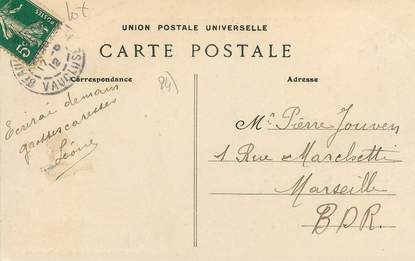 lot
UNION POSTALE UNIVERSELLE
CARTE POSTALE
Correspondance
Adresse
5c
17-6
12
VAUCLUSE
84)
Ecrirai demain
grosses caresses
Léone
Mr Pierre Jouven
1 Rue Marchetti
Marseille
B.D.R.